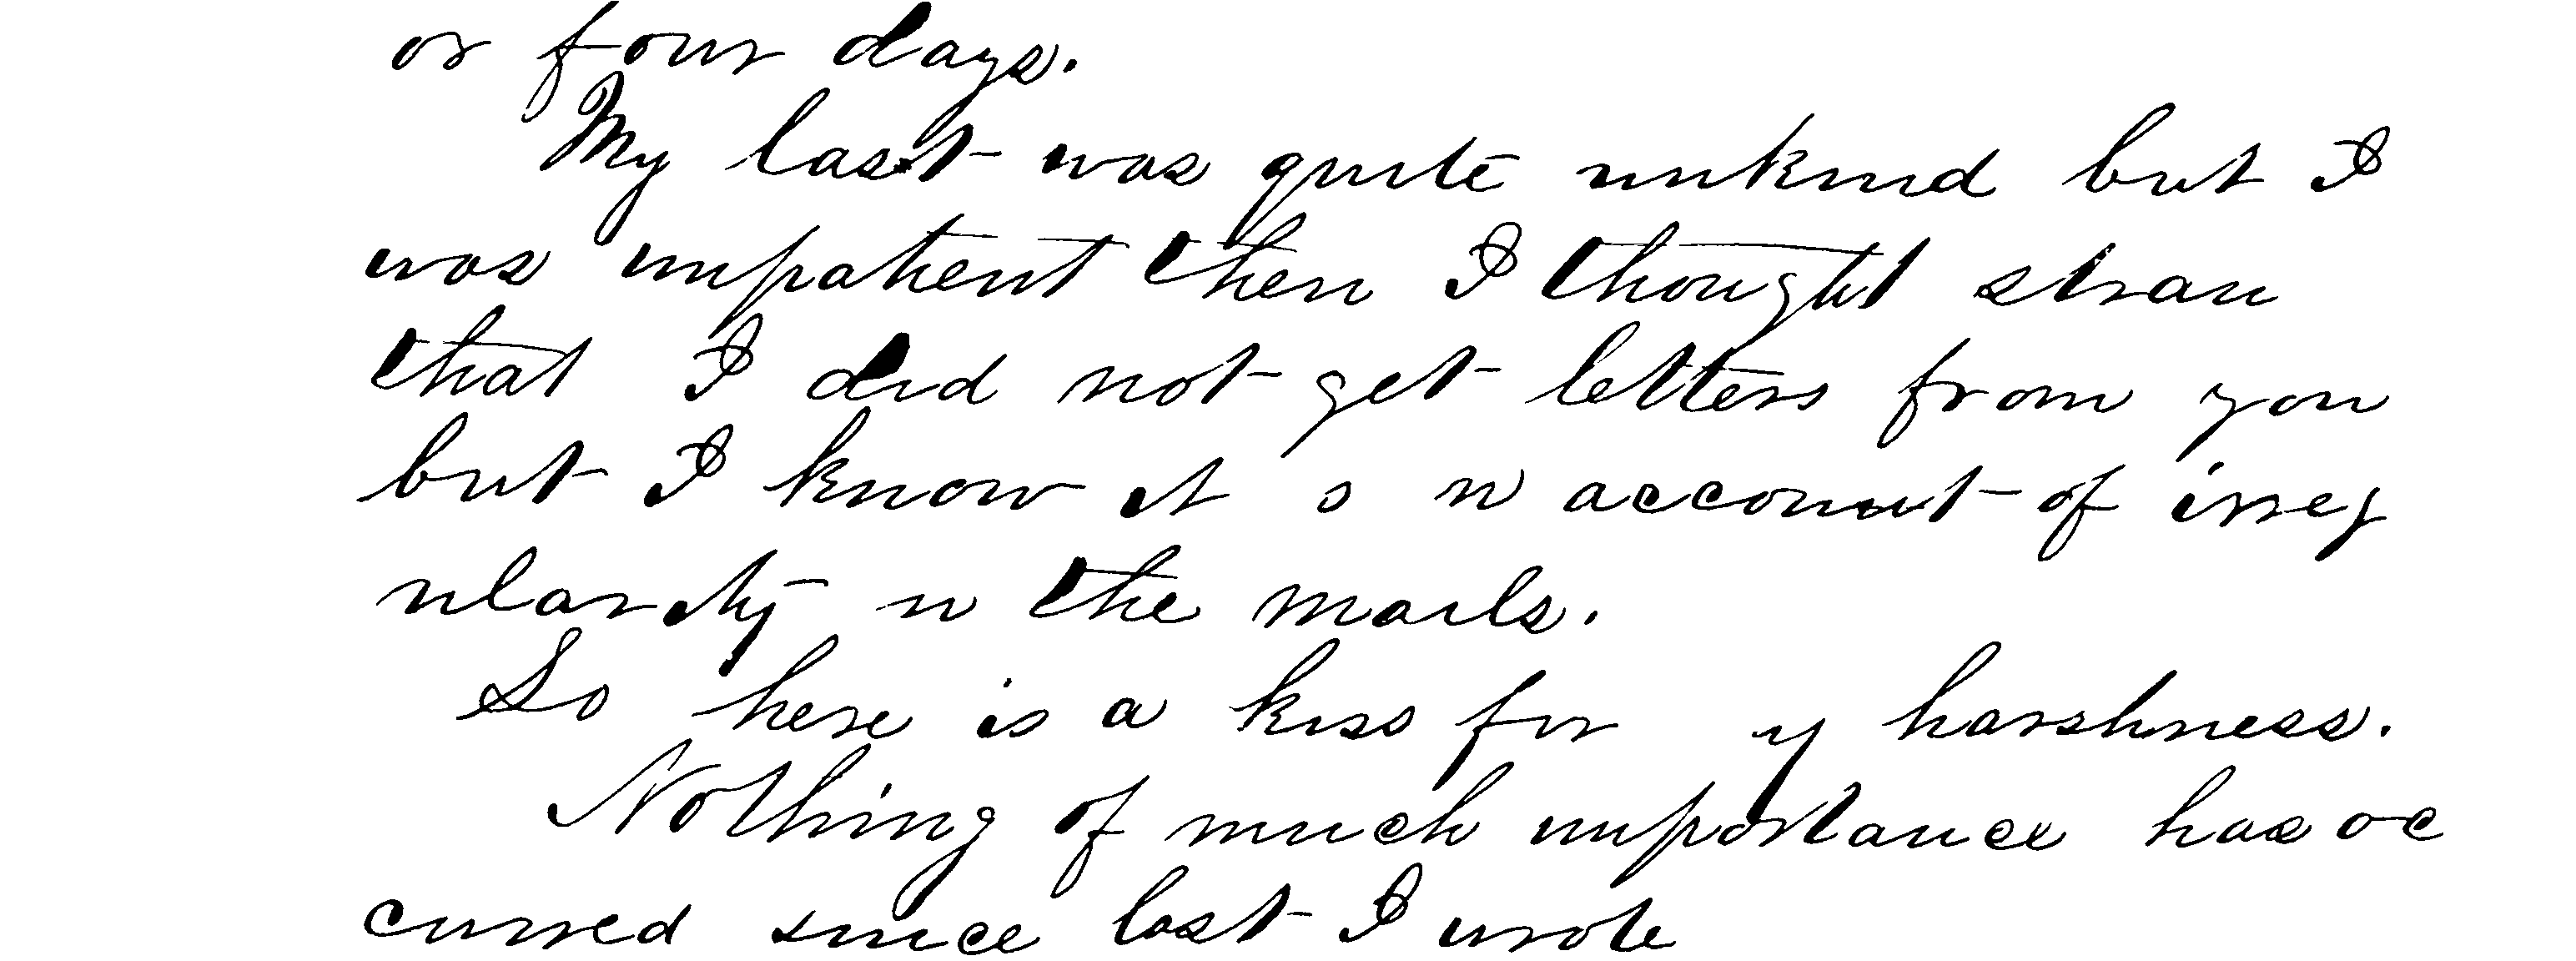 or four days.
My last was quite unkind but I
was impatient then I thought stran
that I did not get letters from you
but I know it is in account of irreg
ularity in the mails.
So here is a kiss for my harshness.
Nothing of much importance has oc
curred since last I wrote